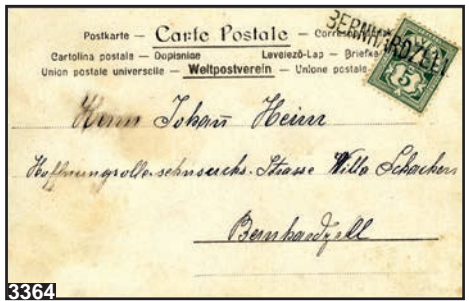 Postkarte – Carte Postale – Correspon
BERNHARDZELL
Cartolina postale – Dopisnice Levelezö-Lap – Briefka
Union postale universelle – Weltpostverein – Unione postale
5
Herrn Johañ Heim
Hoffnungsolle-sehnsuchs-Strasse Villa Schachen
Bernhardzell
3364